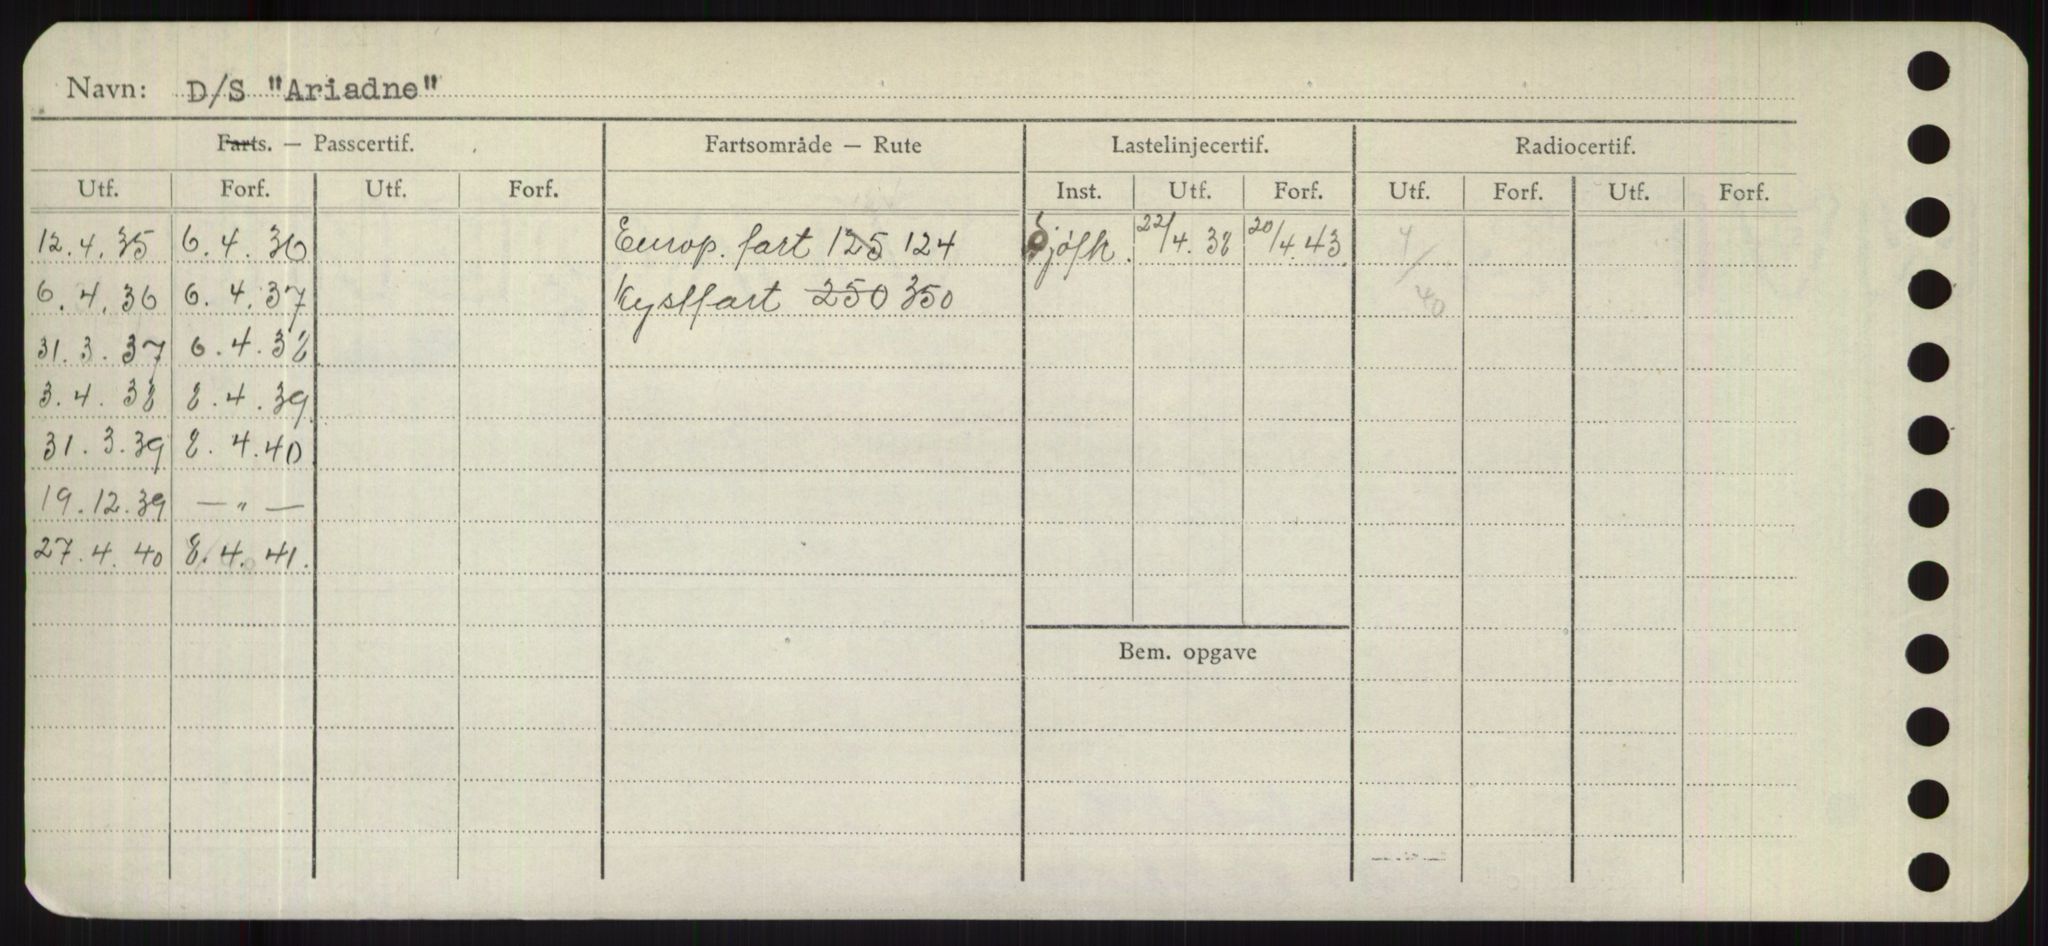 Navn: D/S "Ariadne"
Farts. — Passcertif. Fartsområde — Rute Lastelinjecertif. Radiocertif.
Utf. Forf. Utf. Forf. Inst. Utf. Forf. Utf. Forf. Utf. Forf.
12.4.35 6.4.36 Europ. fart 125 124 Sjøfk. 22/4.38 20/4.43 4/40
6.4.36 6.4.37 Kystfart 250 350
31.3.37 6.4.38
3.4.38 8.4.39
31.3.39 8.4.40
19.12.39 — " —
27.4.40 8.4.41.
Bem. opgave